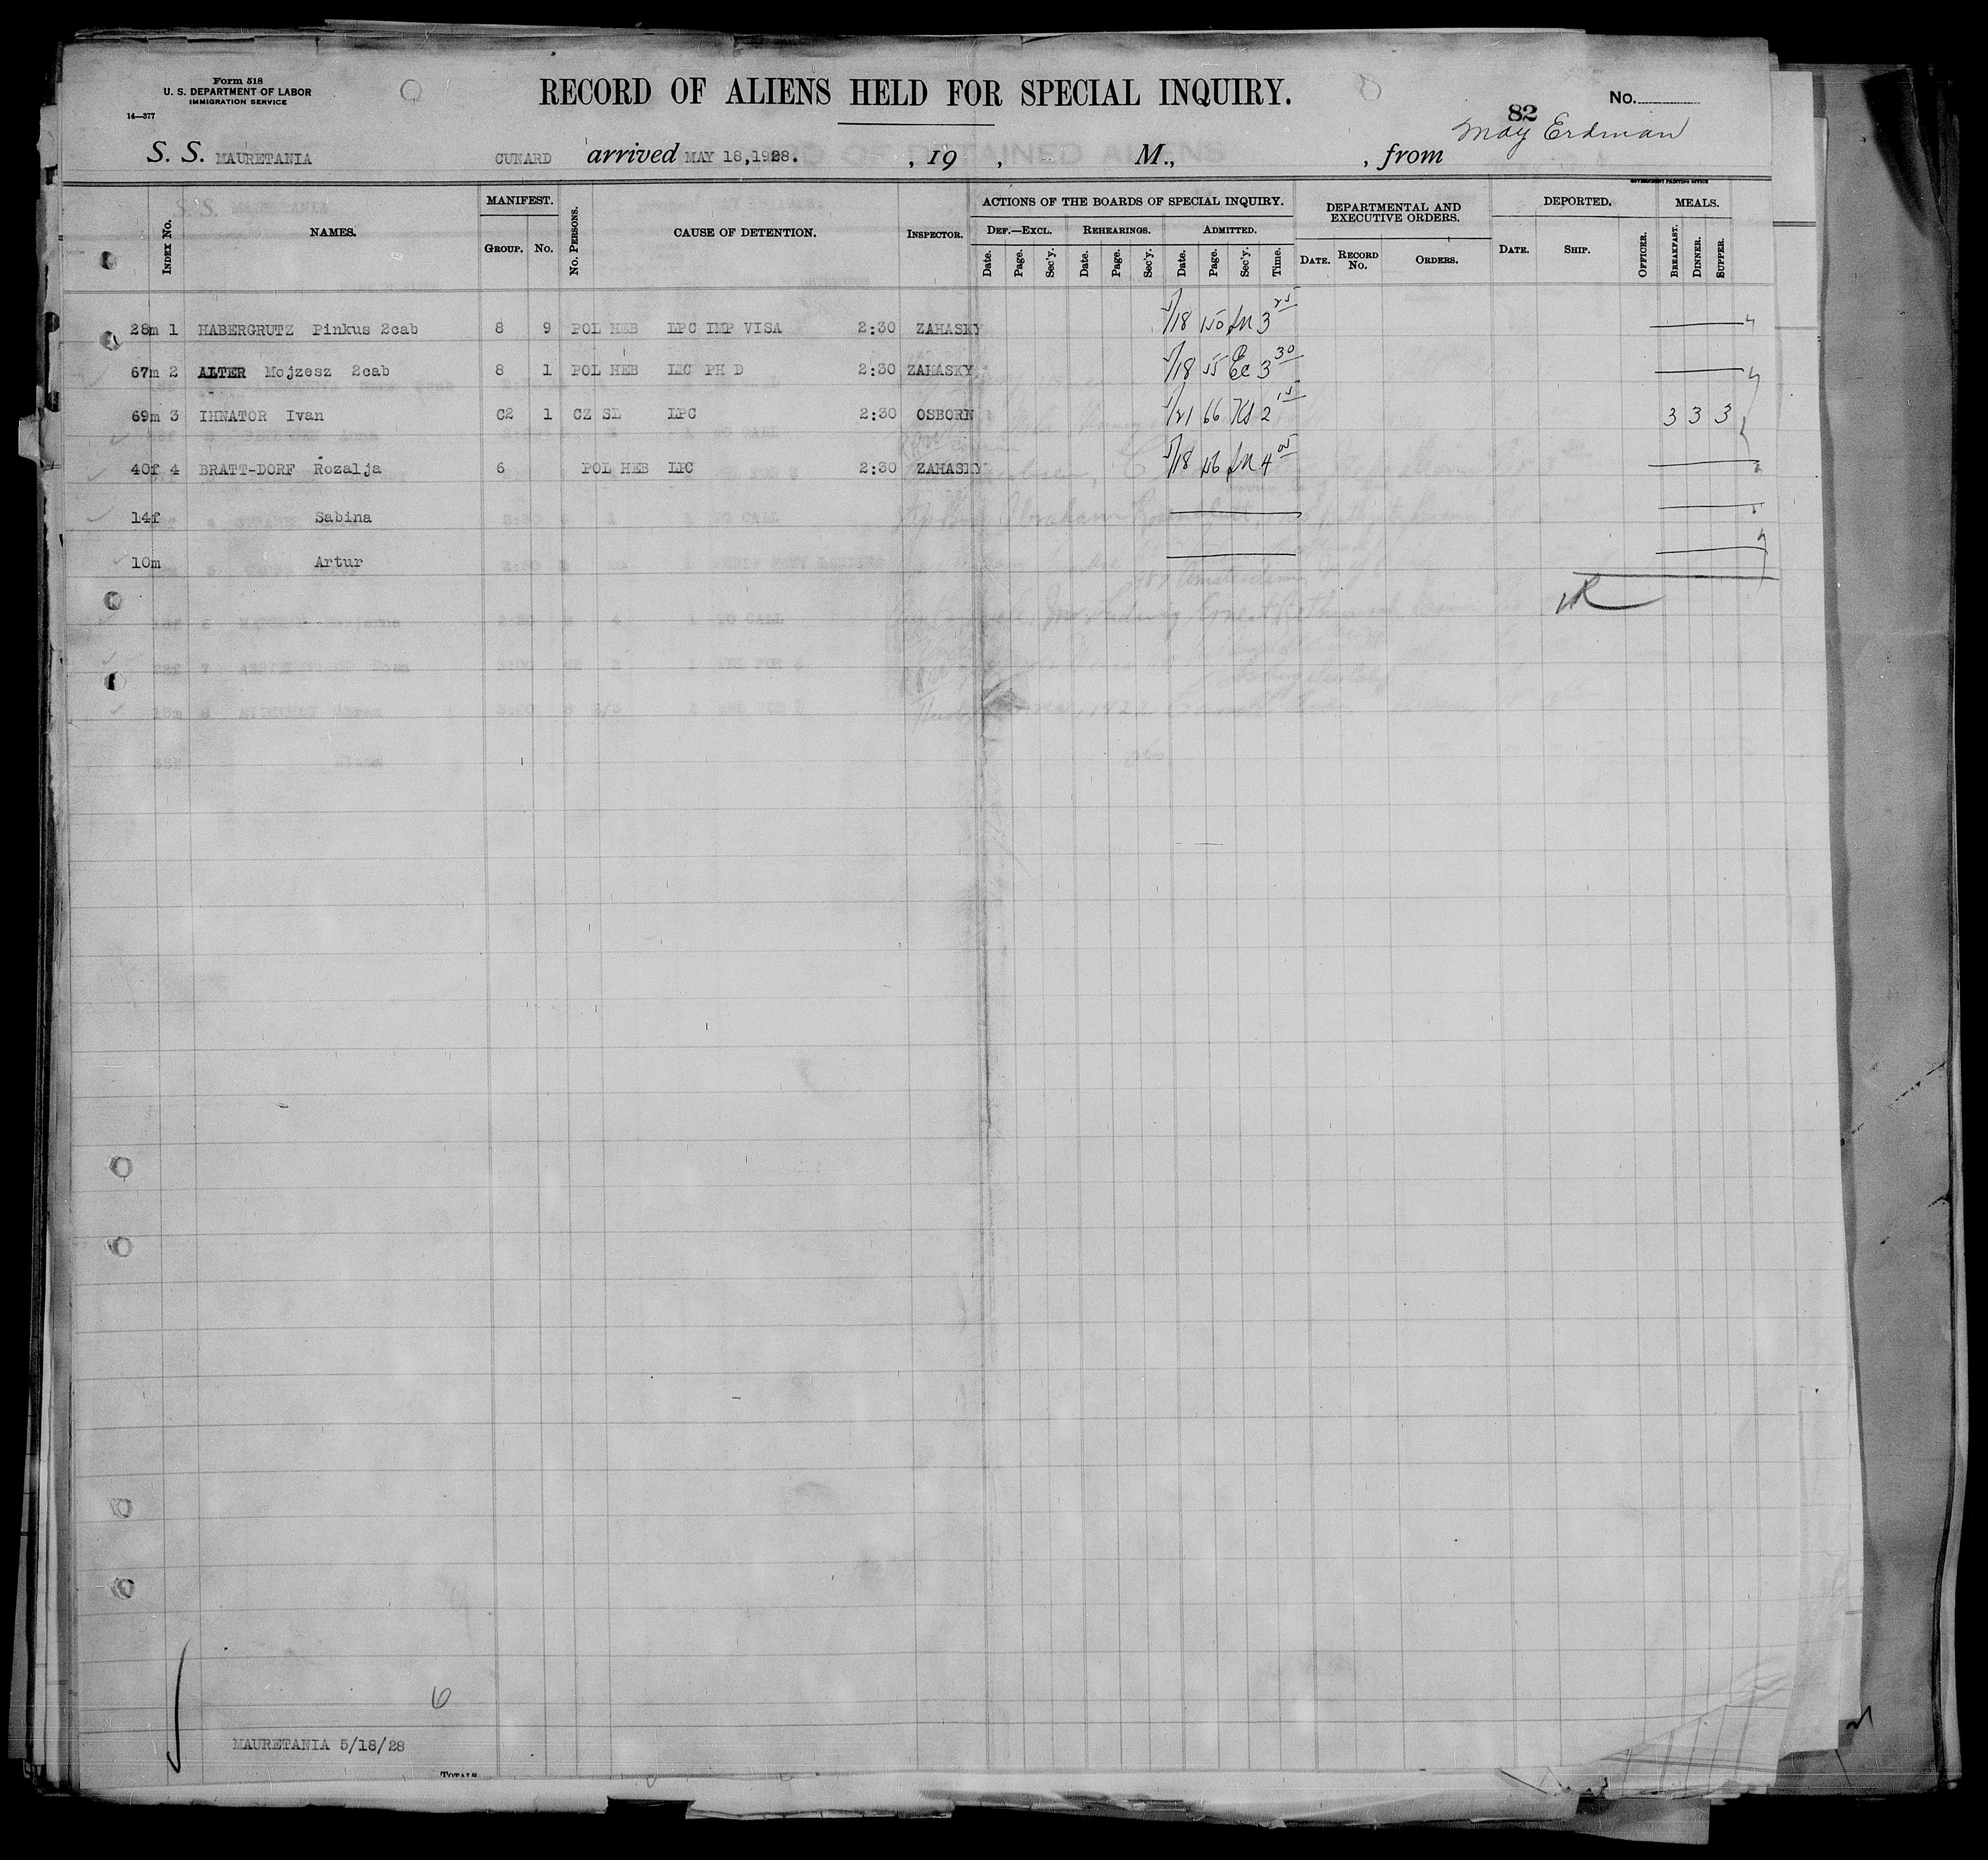 Form 518
U. S. DEPARTMENT OF LABOR
IMMIGRATION SERVICE
14—377
RECORD OF ALIENS HELD FOR SPECIAL INQUIRY.
No.
82
May Erdman
S. S. MAURETANIA CUNARD arrived MAY 18,1928. , 19 , M., , from
GOVERNMENT PRINTING OFFICE
INDEX NO. NAMES. MANIFEST. GROUP. NO. NO. PERSONS. CAUSE OF DETENTION. INSPECTOR. ACTIONS OF THE BOARDS OF SPECIAL INQUIRY. DEF.—EXCL. Date. Page. Sec'y. REHEARINGS. Date. Page. Sec'y. ADMITTED. Date. Page. Sec'y. Time. DEPARTMENTAL AND EXECUTIVE ORDERS. DATE. RECORD NO. ORDERS. DEPORTED. DATE. SHIP. OFFICER. MEALS. BREAKFAST. DINNER. SUPPER.
28m 1 HABERGRUTZ Pinkus 2cab 8 9 POL HEB LPC IMP VISA 2:30 ZAHASKY 5/18 150 3 25
67m 2 ALTER Mojzesz 2cab 8 1 POL HEB LPC PH D 2:30 ZAHASKY 5/18 55 Ec 3 30
69m 3 IHNATOR Ivan C2 1 CZ SL LPC 2:30 OSBORN 5/21 66 2 15 3 3 3
40f 4 BRATT-DORF Rozalja 6 POL HEB LPC 2:30 ZAHASKY 5/18 4 05
14f Sabina
10m Artur
6
MAURETANIA 5/18/28
TOTALS